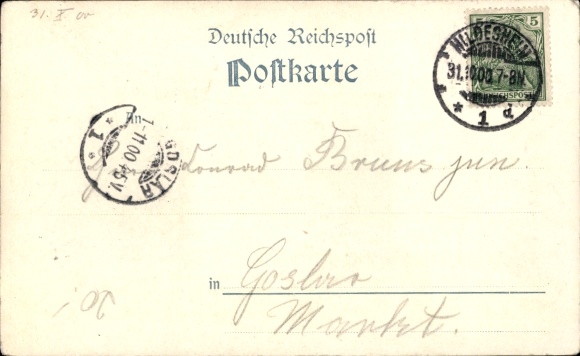 31. X 00
Deutsche Reichspost
Postkarte
5 5
HILDESHEIM
31.10.00.7-8N.
* 1 d
REICHSPOST
GOSLAR
1-11.00.4-5V.
* 1 *
An
Herrn Conrad Bruns jun.
in Goslar
Markt.